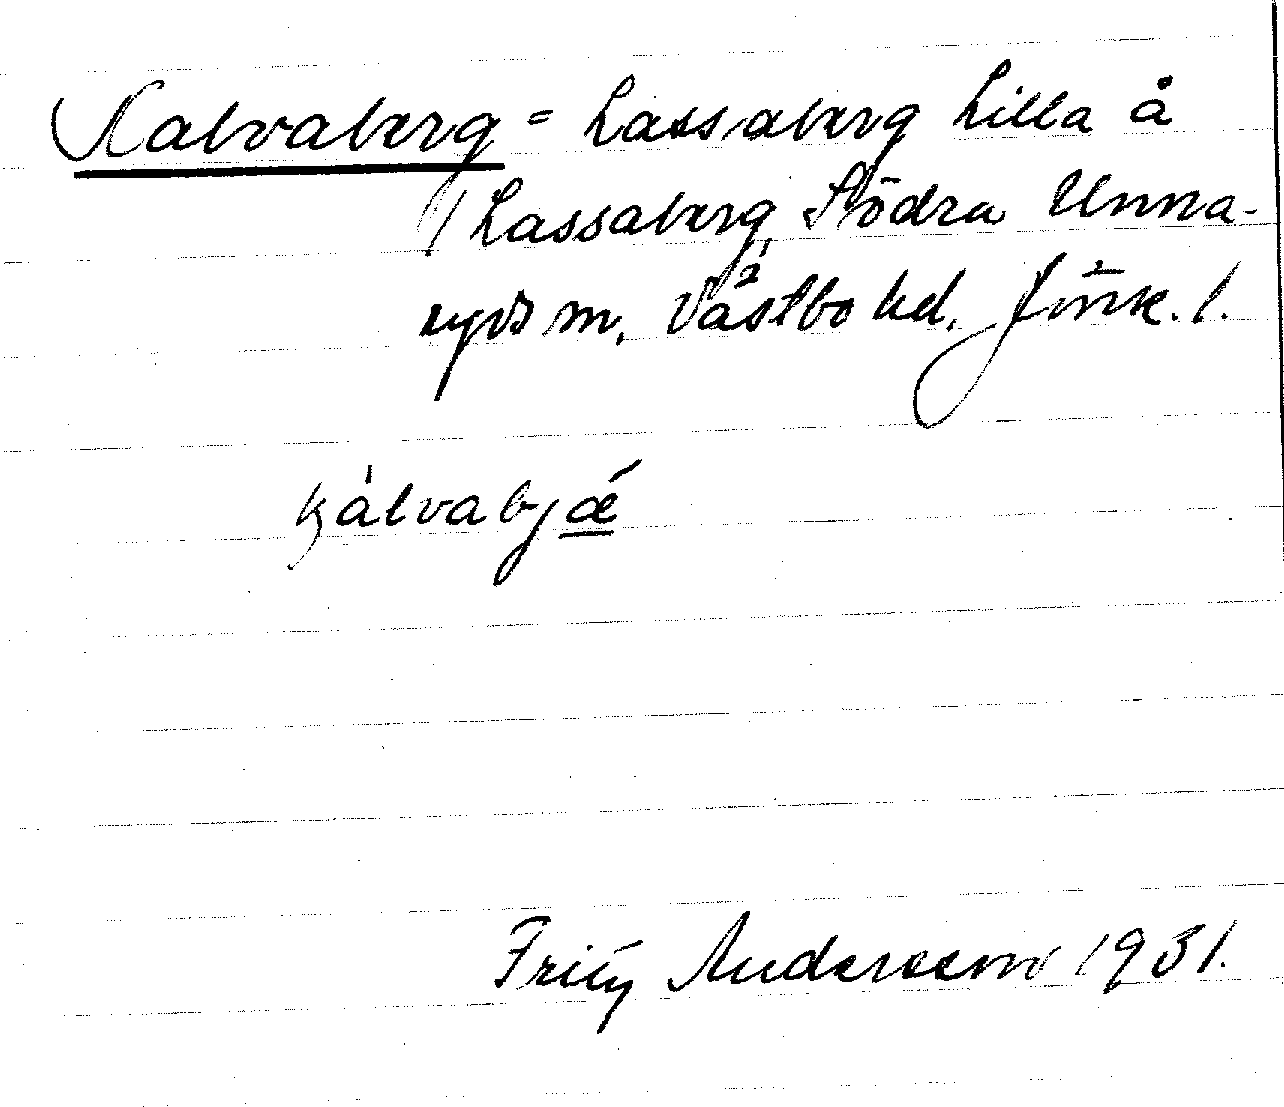 Kalvaberg = Lassaberg Lilla å
Lassaberg, Södra Unna-
ryds sn, Västbo hd, Jönk. l.
kálvabjǽ
Fritz Andersson 1931.